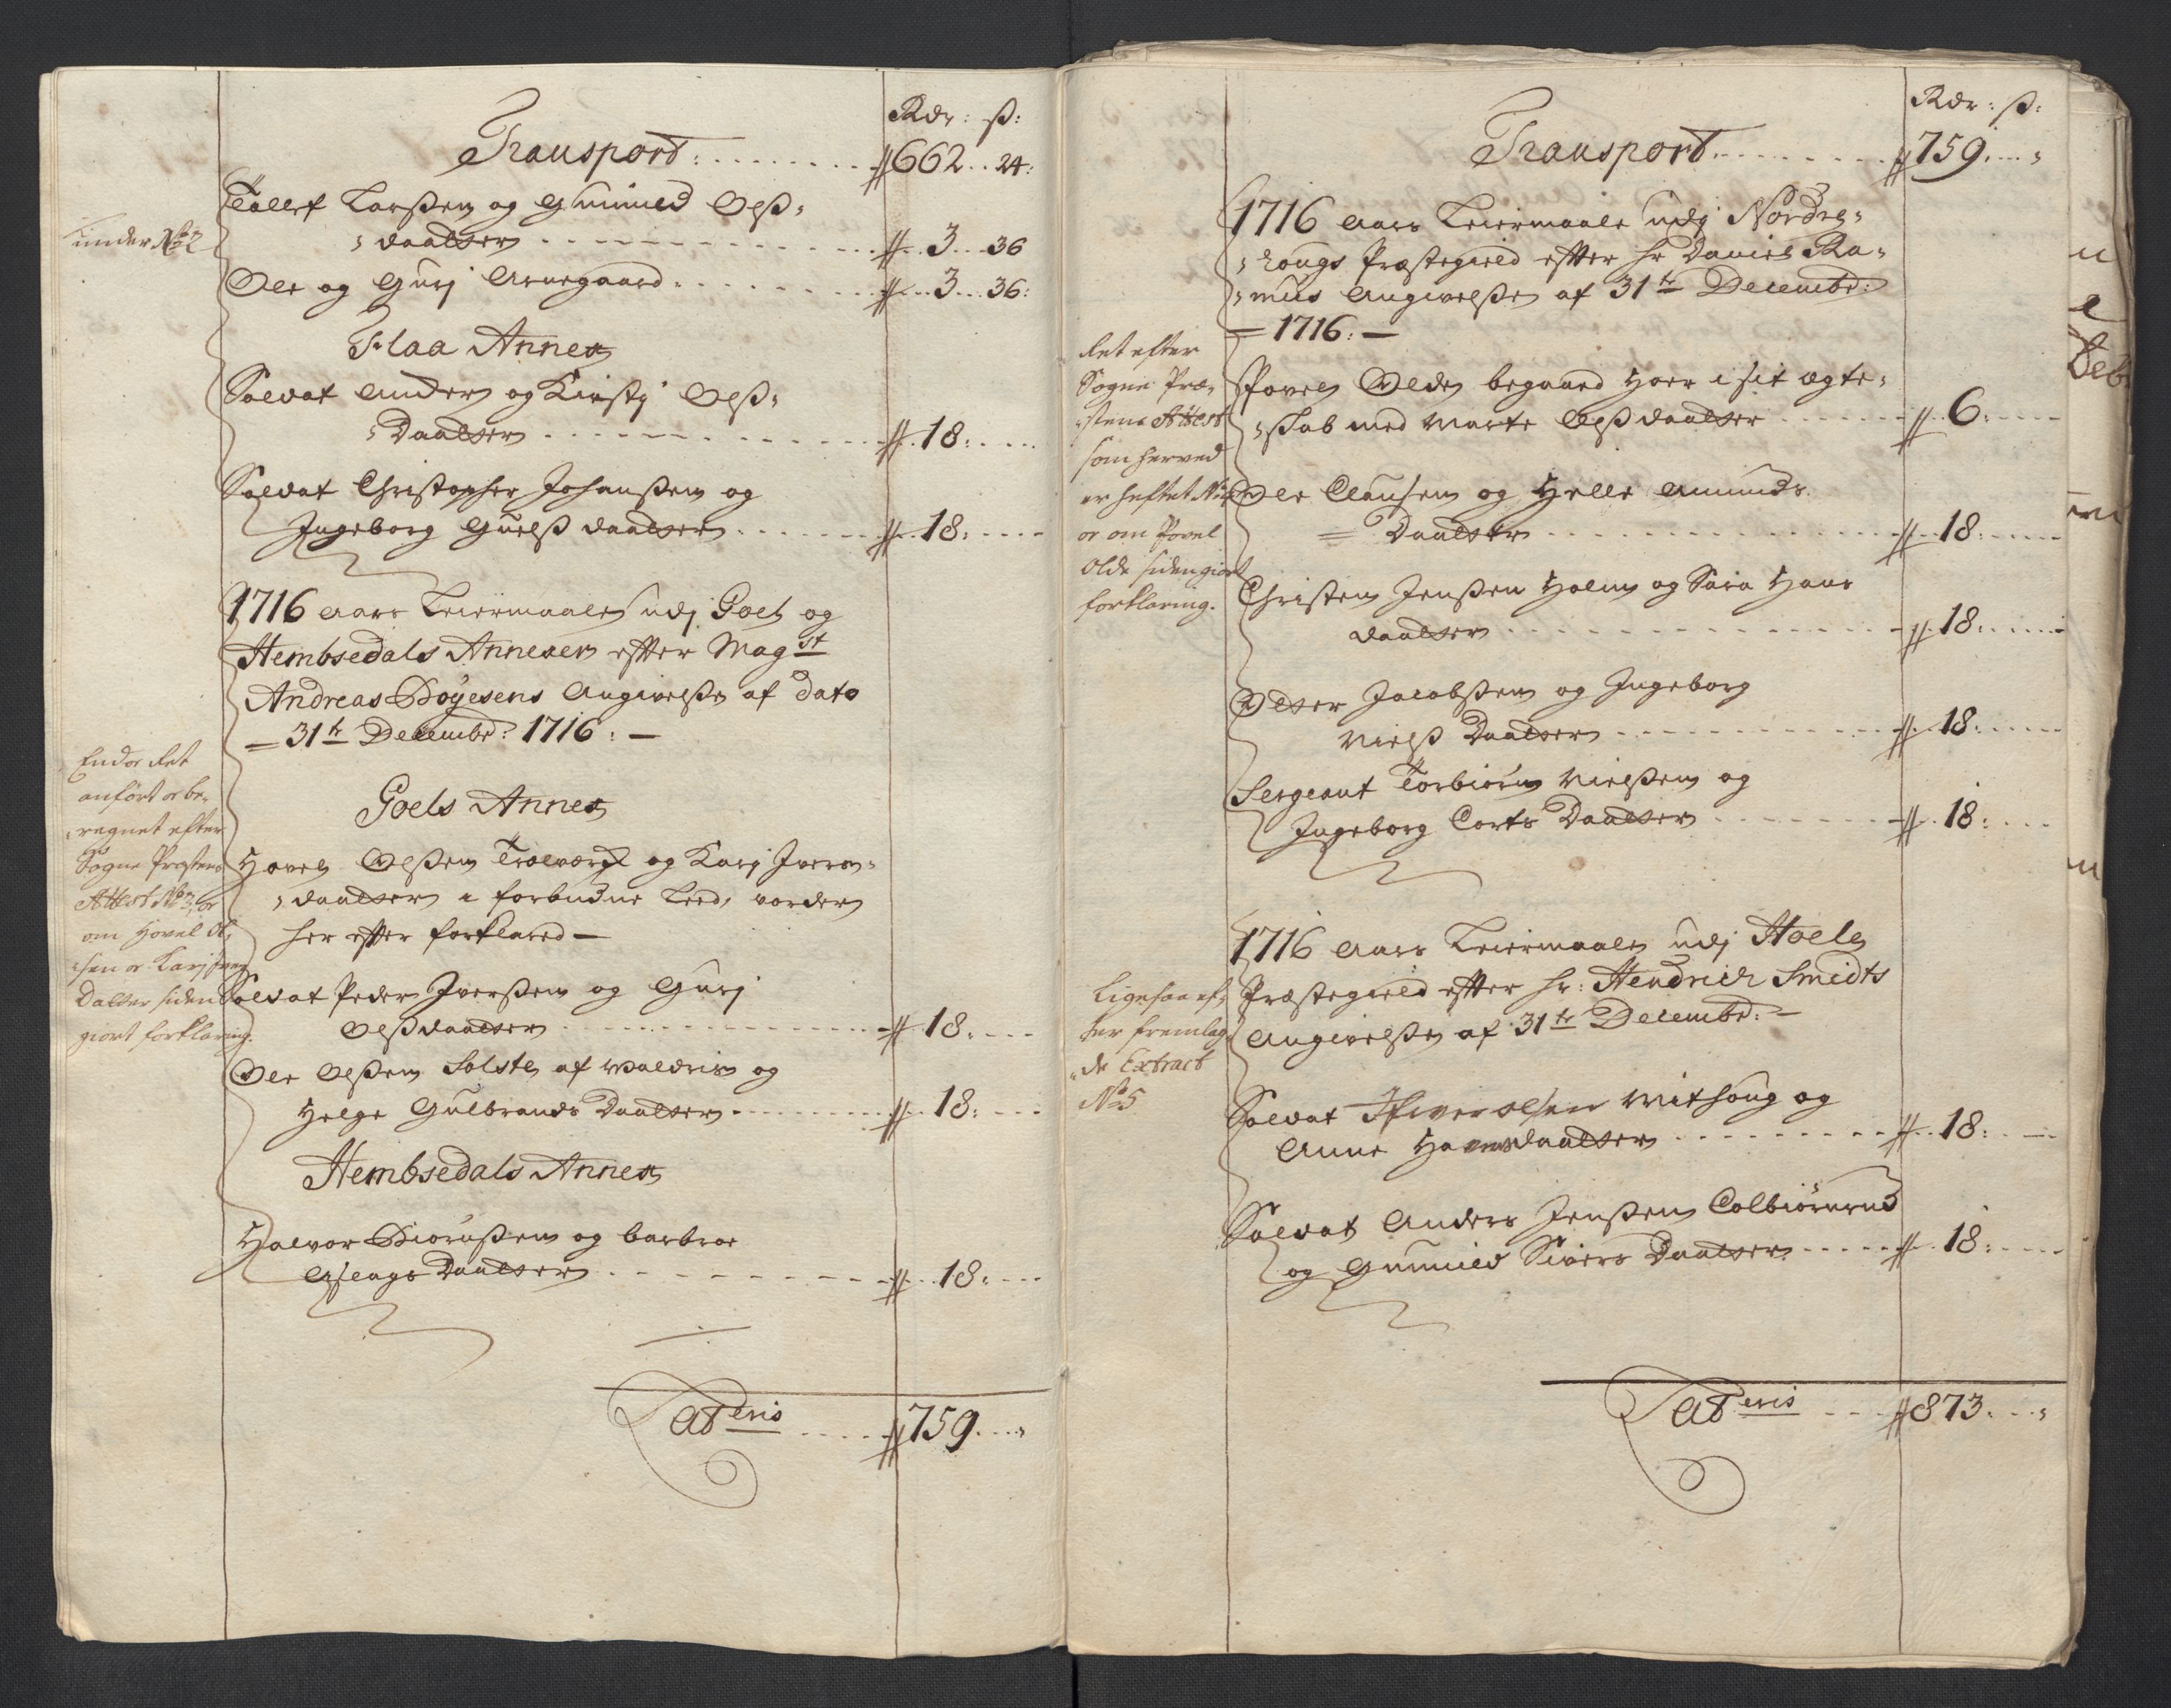 Rdr: ß:
Transport: 662 .. 24:
under No 2
Tollef Larßen og Gunnild Olß-
daatter 3 .. 36
Ole og Gurj Arnegaard 3 .. 36:
Flaa Annex
Soldat Anders og Kirstj Olß-
Daatter 18:
Soldat Christopher Johanßen og
Ingeborg Guelß daatter 18:
1716 aars Leiermaale udj Goel og
Hembsedals Annexer effter Magst
Andreas Bøyesens Angivelße af dato
31te Decembr: 1716: —
Endoe ret
anfört or be-
regnet efter
Sogne Præstens
Attest No 3, or
om Hovel Ol-
sen or Karj Ivers
Datter siden
giort forklaring.
Goels Annex
Hovel Olßen Trolværg og Karj Ivers-
daatter i forbudne Leed, vorder
her effter forklared —
Soldat Peder Iverßen og Gurj
Olßdaatter 18:
Ole Olßen Solste af Waldris og
Helge Gulbrands Daatter 18:
Hembsedals Annex
Halvor Biørnßen og barbroe
Aslags Daatter 18:
Lateris 759
Rdr: ß:
Transport 759
1716 Aars Leiermaale udj Nordre-
hougs Præstegield effter hr Daniel Ra-
mus Angivelße af 31te Decembr:
1716: —
Ret efter
Sogne Præ-
stens Attest
som herved
er heftet No 4
or om Povel
Olde siden giort
forklaring.
Povel Olde begaaed Hoer i sit ægte-
skab med Marte Olß daatter 6:
Ole Clausen og Helle Amunds
Daatter 18:
Christen Jenßen Holm og Sara Hans
daatter 18:
Peter Jacobßen og Ingeborg
Nielß Daatter 18:
Sergeant Torbiørn Nielßen og
Ingeborg Corts Daatter 18:
1716 Aars Leiermaale udj Hoele
Præstegield effter hr: Hendrich Smidts
Angivelße af 31te Decembr: —
Ligesaa ef-
ter fremlag-
de Extract
No 5
Soldat Ifwer olsen Withoug og
Anne Hovelsdaatter 18:
Soldat Anders Jenßen Colbiørnrud
og Gunnild Sivers Daatter 18:
Lateris 873